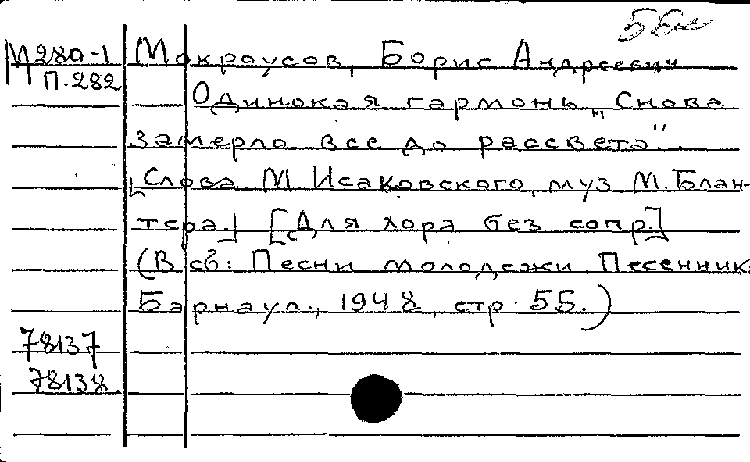 М280-1 Мокроусов, Борис Андреевич
П-282 Одинокая гармонь „Снова
замерло все до рассвета"
[Слова М Исаковского, муз М. Блан-
тера] [Для хора без сопр.]
(В сб: Песни молодежи Песенник
Барнаул., 1948, стр. 55.)
78137
78138